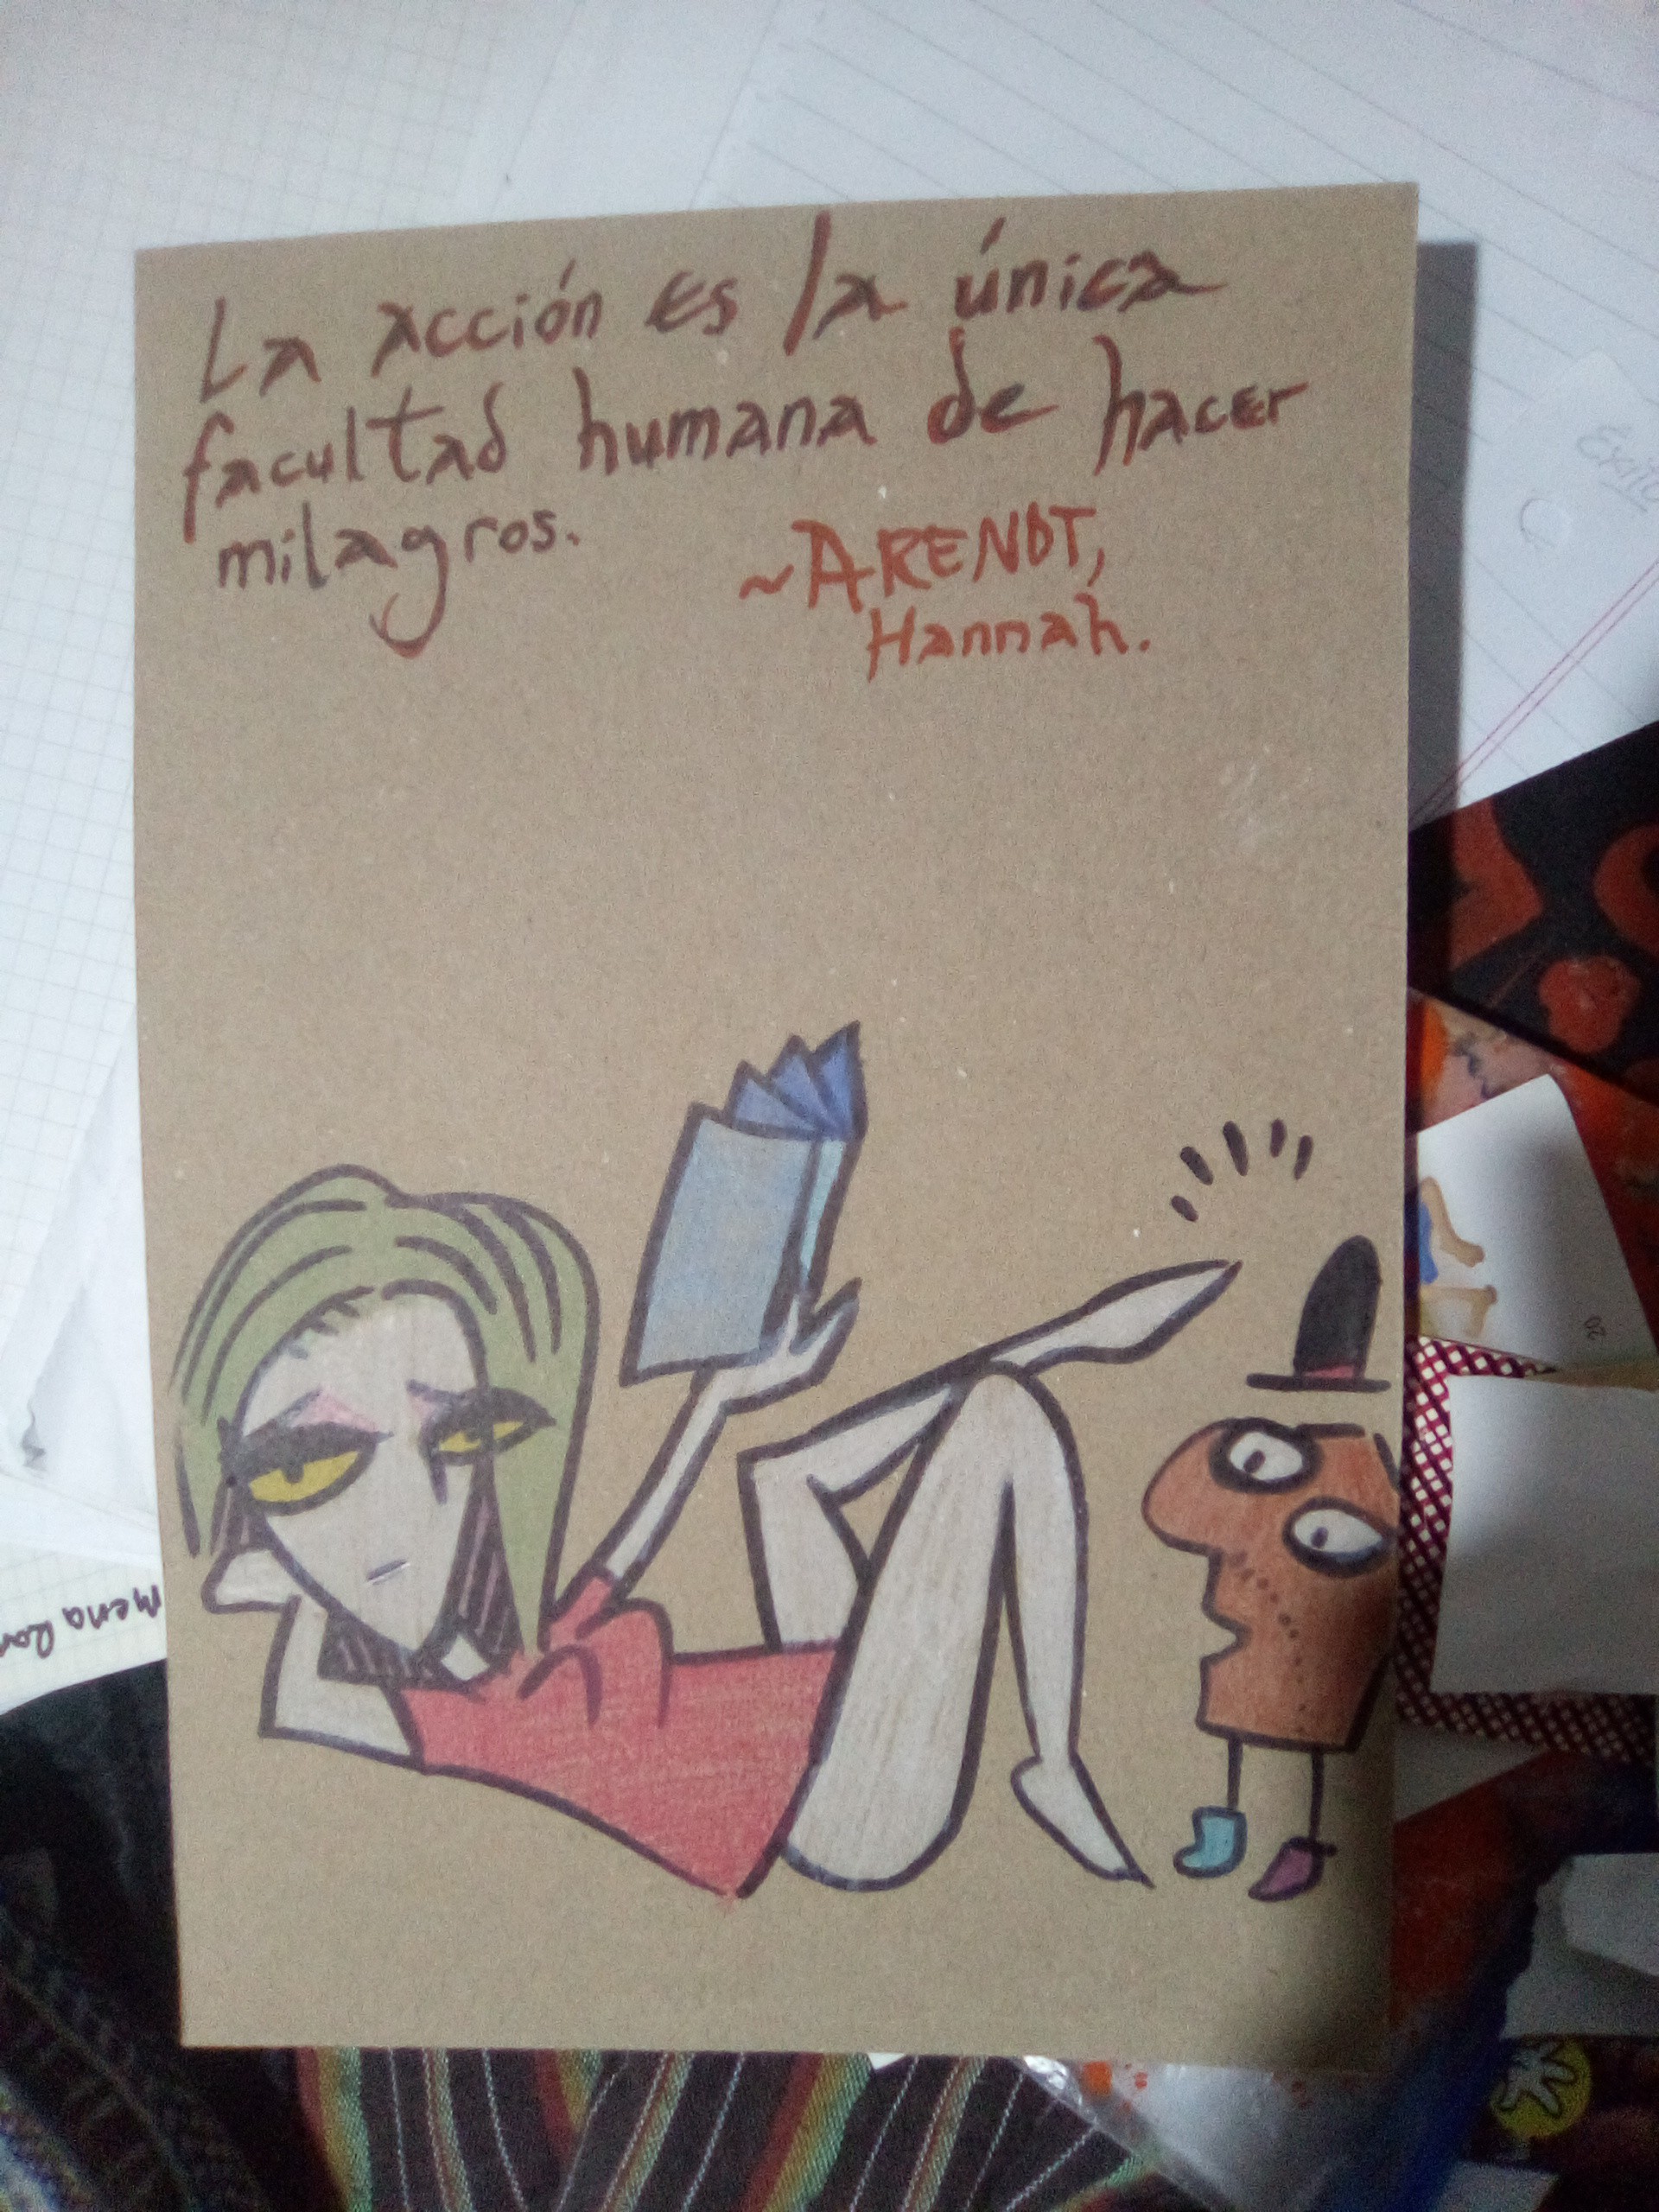 La acción es la única
facultad humana de hacer
milagros.
~ARENDT,
Hannah.
Éxito
20